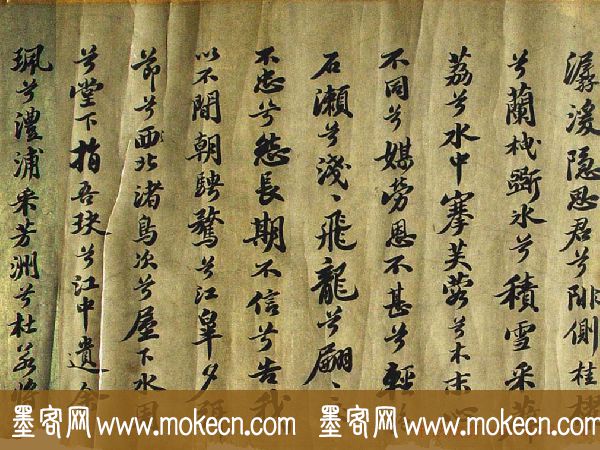 潺湲隐思君兮陫側桂櫂
兮蘭枻斲冰兮積雪采薜
荔兮水中搴芙蓉兮木末心
不同兮媒勞恩不甚兮輕
石瀬兮淺〻飛龍兮翩〻
不忠兮怨長期不信兮告我
以不間朝騁騖兮江皋夕弭
節兮西北渚鳥次兮屋下水周
兮堂下捐吾玦兮江中遺余
珮兮澧浦采芳洲兮杜若將
墨客网 www.mokecn.com 墨客网 www.mokecn.com